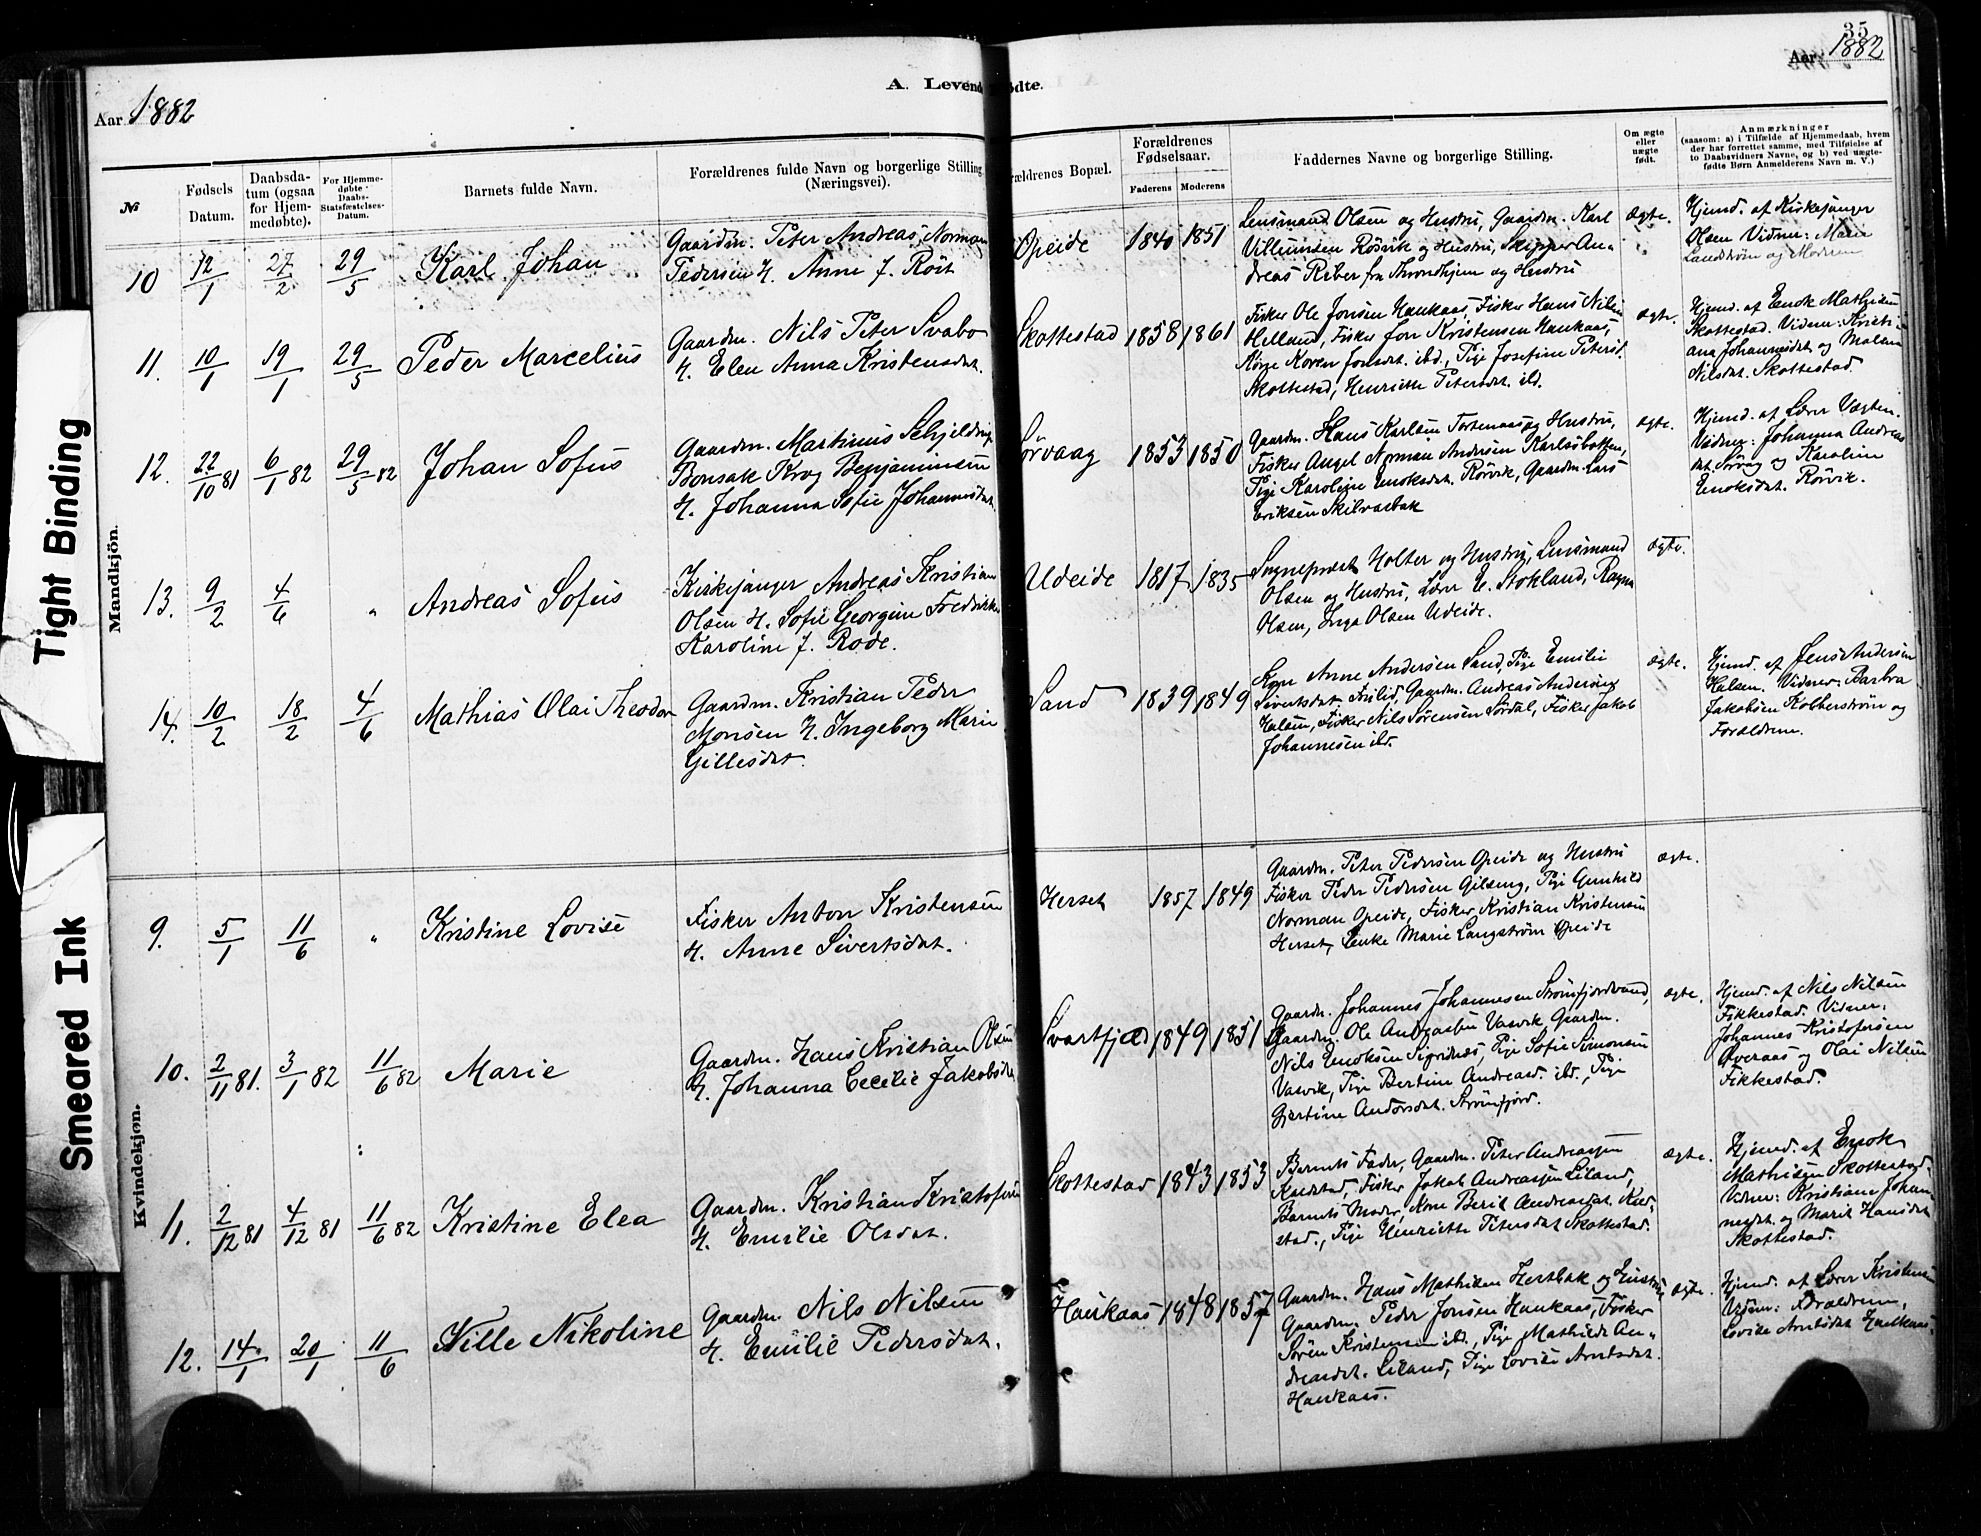 35
Aar 1882
A. Levendødte.
Aar 1882
№
Fødsels Datum.
Daabsdatum (ogsaa for Hjemmedøbte).
For Hjemmedøbte Daabs-Statsfæstelses-Datum.
Barnets fulde Navn.
Forældrenes fulde Navn og borgerlige Stilling (Næringsvei).
Forældrenes Bopæl.
Forældrenes Fødselsaar.
Faderens
Moderens
Faddernes Navne og borgerlige Stilling.
Om ægte eller uægte født.
Anmærkninger
(saasom: a) i Tilfælde af Hjemmedaab, hvem
der har forrettet samme, med Tilføielse af
to Daabsvidners Navne, og b) ved uægte-
fødte Børn Anmelderens Navn m. V.)
Tight Binding
Smeared Ink
Mandkjön.
10 12/1 27/2 29/5 Karl Johan
Gaardm. Peter Andreas Norman
Pedersen H. Anne f. Röst
Opeide 1840 1851
Lensmand Olsen og Hustru, Gaardm. Karl
Villumsen Rörvik og Hustru, Skipper An-
dreas Riber fra Throndhjem og Hustru
Ægte.
Hjemd. af Kirkesanger
Olsen Vidner: Maria
Landstrøm og Moderen
11. 10/1 19/1 29/5 Peder Marcelius
Gaardm. Nils Peter Svabo
H. Elen Anna Kristensdat.
Skottestad 1858 1861
Fisker Ole Jonsen Haukaas, Fisker Hans Nilsen
Helland, Fisker Jon Kristensen Haukaas,
Kone Karen Jonsdat. ibd., Pige Josefine Petersd.
Skottestad, Henriette Petersdat. ibd.
ægte.
Hjemd. af Enok Mathisen
Skottestad. Vidner: Kristi-
ana Johannesdat. og Malene
Nilsdat. Skottestad.
12. 22/10 81 6/1 82 29/5 82 Johan Sofus
Gaardm. Martinus Schjeldrup
Bonsak Krog Benjaminsen
H. Johanna Sofie Johannesdat.
Sörvaag 1853 1850
Gaardm. Hans Karlsen Tortenaas og Hustru,
Fisker Angel Norman Andersen Karlsbakken,
Pige Karoline Enoksdat. Rörvik, Gaardm. Lars
Eriksen Skilvasbak
ægte.
Hjemd. af Lærer Vægten.
Vidner: Johanna Andreas
dat. Sörvag og Karoline
Enoksdat. Rörvik.
13. 9/2 4/6 " Andreas Sofus
Kirkesanger Andreas Kristian
Olsen H. Sofie Georgine Fredrikke
Karoline f. Rode.
Udeide 1817 1835
Sogneprest Holter og Hustru, Lensmand
Olsen og Hustru, Lærer E. Stokland, Ragna
Olsen, Inga Olsen Udeide.
ægte.
14. 10/2 18/2 4/6 Mathias Olai Theodor
Gaardm. Kristian Peder
Monsen H. Ingeborg Marie
Gillesdat.
Sand 1839 1849
Kone Anne Andersen Sand, Pige Emilie
Sivertsdat. Fuilid, Gaardm. Andreas Andersen
Halsen, Fisker Nils Sörensen Sördal, Fisker Jakob
Johannesen ibd.
ægte.
Hjemd. af Jens Andersen
Halsen. Vidner: Barbra
Jakobsen Kobberström og
Forældrene.
Kvindekjön.
9. 5/1 11/6 " Kristine Lovise
Fisker Anton Kristensen
H. Anne Sivertsdat.
Herset 1857 1849
Gaardm. Peter Pedersen Opeide og Hustru
Fisker Peder Pedersen Gilseng, Pige Gunhild
Norman Opeide, Fisker Kristian Kristensen
Herset, Enke Marie Langström Opeide
ægte.
10. 2/11 81. 3/1 82 11/6 82 Marie
Gaardm. Hans Kristian Olsen
H. Johanna Cecilie Jakobsdat.
Svartfjeld 1849 1851
Gaardm. Johannes Johannesen Strömfjordvand,
Gaardm. Ole Andreassen Vasvik Gaardm.
Nils Enoksen Sigridnæs, Pige Sofie Simonsen
Vasvik, Pige Bertine Andreasd. ibd., Pige
Gjertine Andorsdat. Strömfjord.
ægte.
Hjemd. af Nils Nilsen
Fikkestad. Vidner:
Johannes Kristofersen
Överaas og Olai Nilsen
Fikkestad.
11. 2/12 81 4/12 81 11/6 82 Kristine Elea
Gaardm. Kristian Kristofersen
H. Emilie Olsdat.
Skottestad 1843 1853
Barnets Fader, Gaardm. Peter Andreassen
Kaldstad, Fisker Jakob Andreassen Leiland,
Barnets Moder, Kone Berit Andreasdat. Kald-
stad., Pige Henriette Petersdat Skottestad.
ægte.
Hjemd. af Enok
Mathisen Skottestad.
Vidner: Kristiane Johan-
nesdt. og Marit Hansdat
Skottestad.
12. 14/1 20/1 11/6 Nille Nikoline
Gaardm. Nils Nilsen
H. Emilie Pedersdat.
Haukaas 1848 1857
Gaardm. Hans Mathisen Hestbak og Hustru
Gaardm. Peder Jonsen Haukaas, Fisker
Sören Kristensen ibd., Pige Mathilde An-
dreasdat. Leiland, Pige Lovise Arntsdat.
Haukaas.
ægte.
Hjemd. af Lærer Kristensen
Vidner: Forældrene,
Lovise Arntsdat Haukaas.